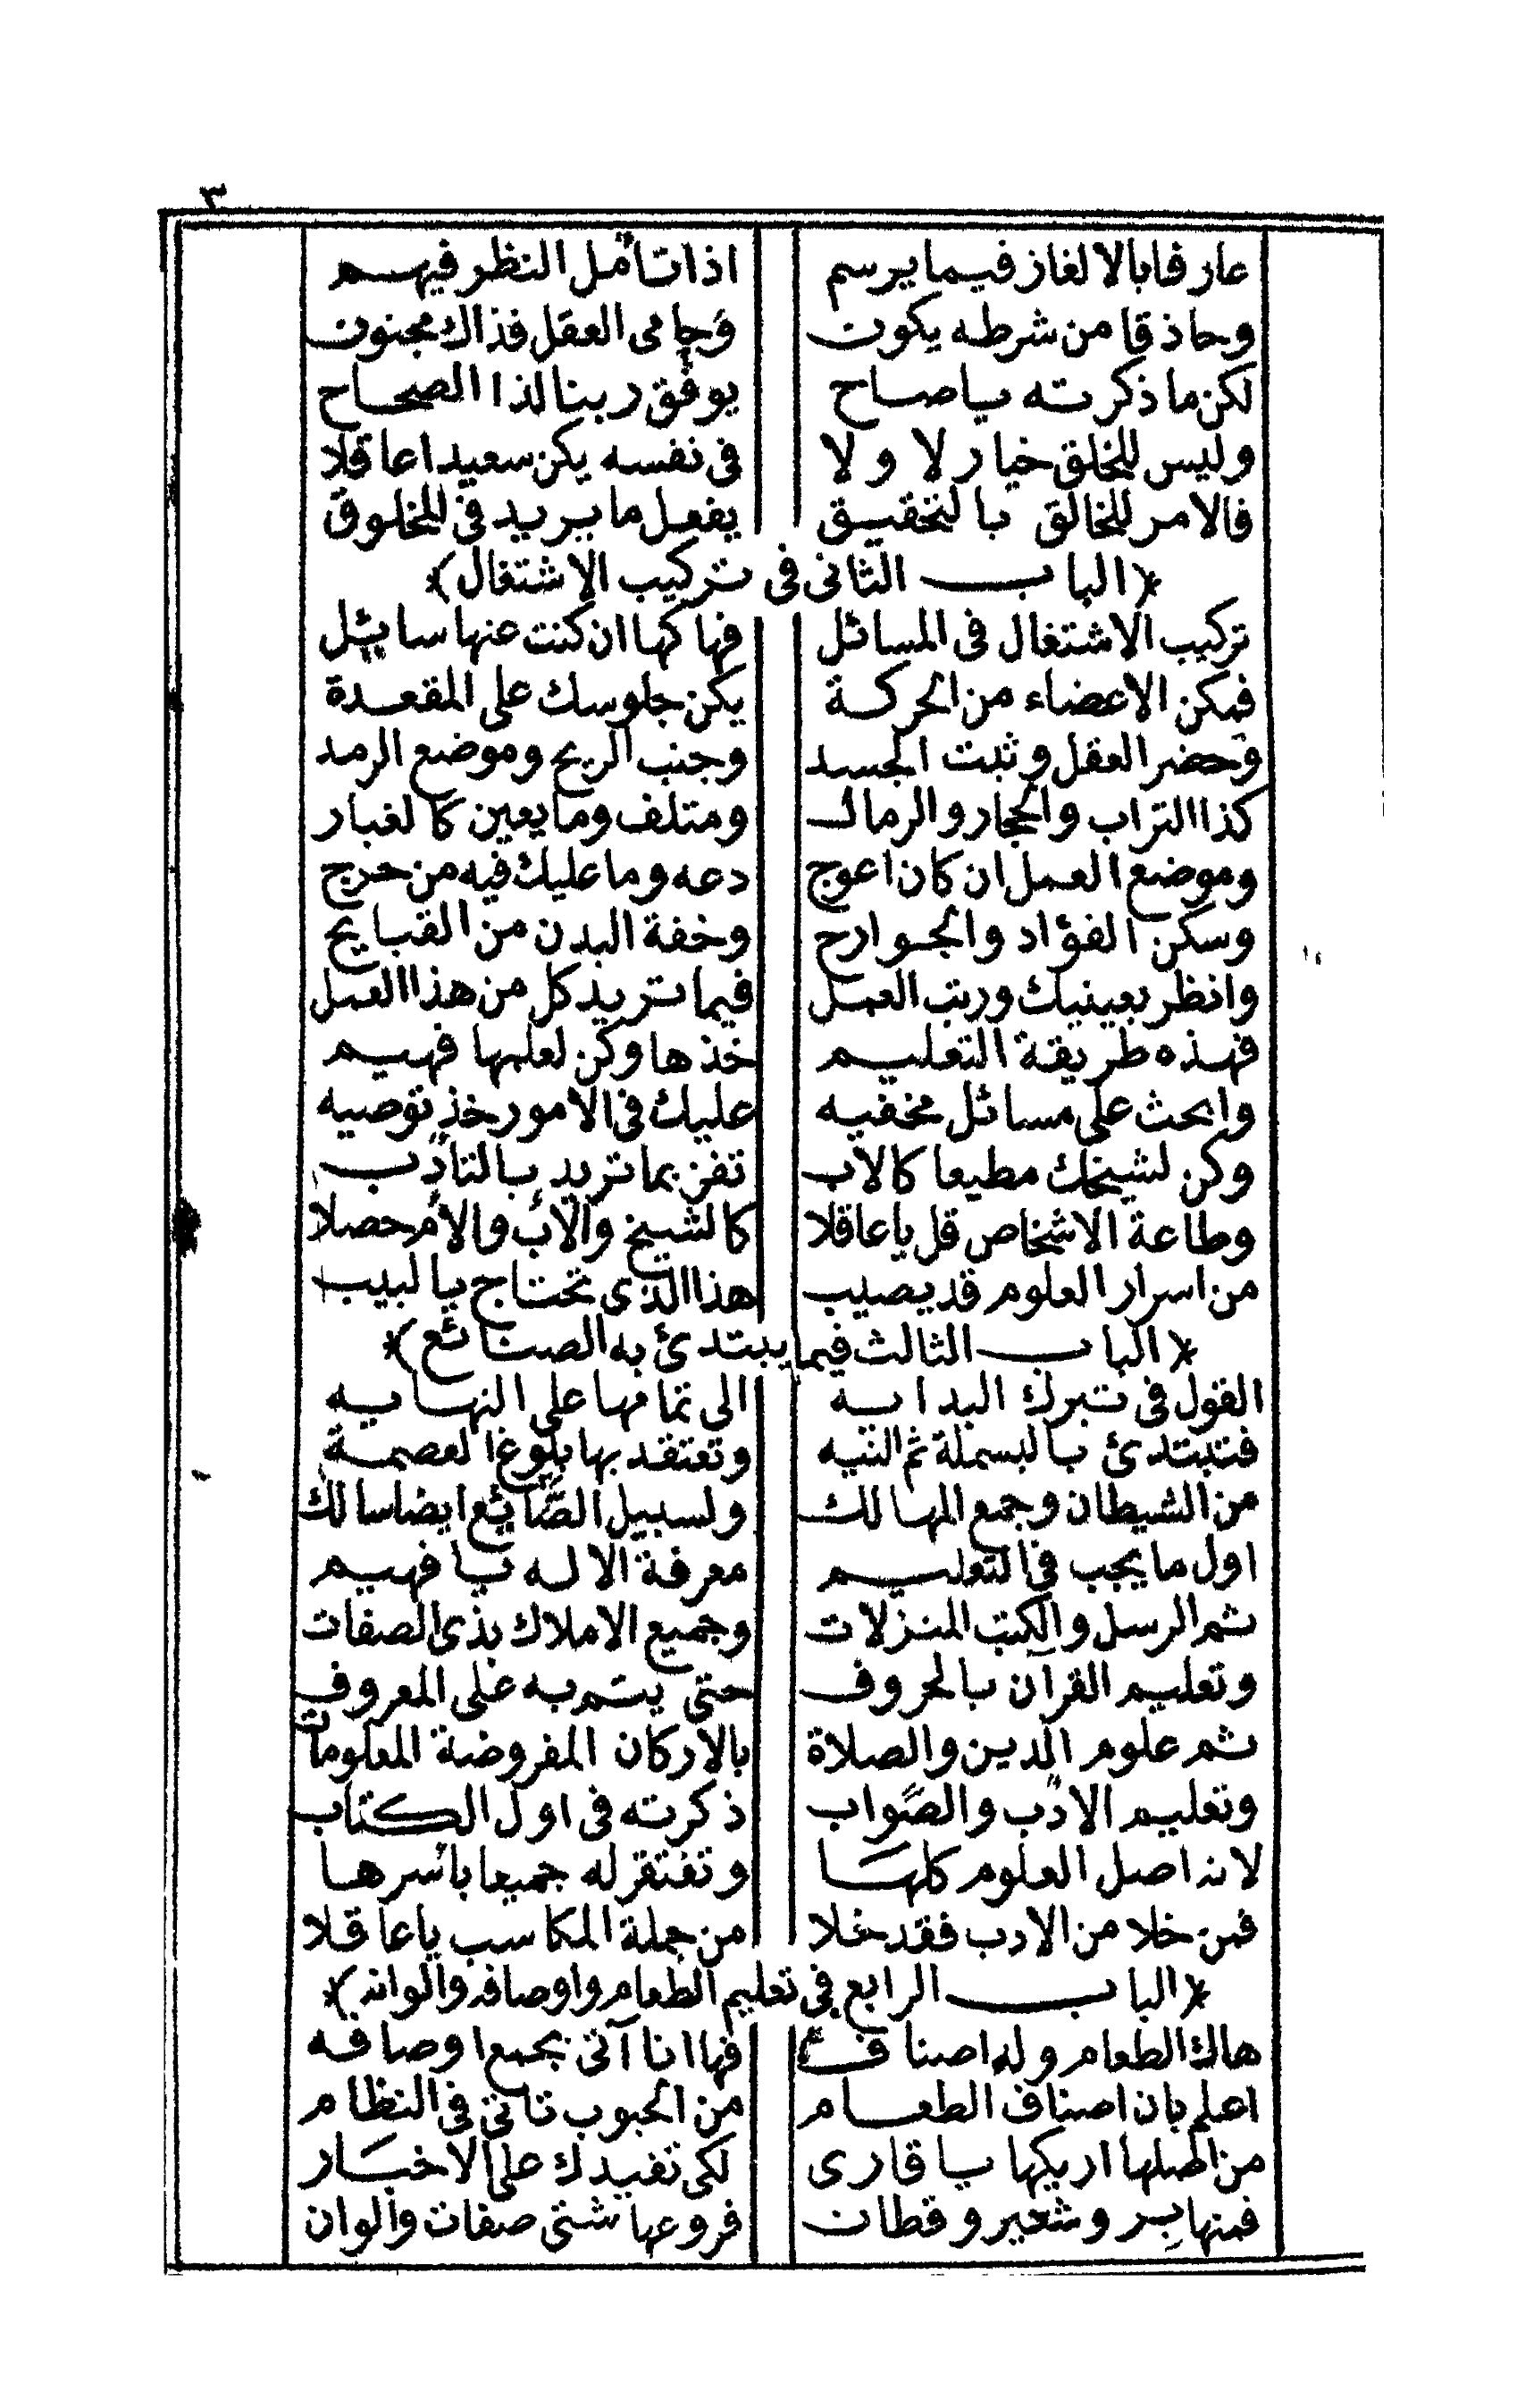 ٣
عارفا بالالغاز فيما يرسم اذا تأمل النظر فيهم
وحاذقا من شرطه يكون وحامى العقل فذاك مجنون
لكن ما ذكرته يا صاح يوفق ربنا لذا الصحاح
وليس للخلق خيار لا ولا فى نفسه يكن سعيدا عاقلا
فالامر للخالق بالتحقيق يفعل ما يريد فى المخلوق
﴿الباب الثانى فى تركيب الاشتغال﴾
تركيب الاشتغال فى المسائل فهاكها ان كنت عنها سايئل
فمكن الاعضاء من الحركة يكن جلوسك على المقعدة
وحضر العقل وثبت الجسد وجنب الريح وموضع الرمد
كذا التراب والحجار والرمال ومتلف وما يعين كالغبار
وموضع العمل ان كان اعوج دعه وما عليك فيه من حرج
وسكن الفؤاد والجوارح وخفة البدن من القبايح
وانظر بعينيك ورتب العمل فيما تريد كل من هذا العمل
فهذه طريقة التعليم خذها وكن لعلمها فهيم
وابحث على مسائل مخفيه عليك فى الامور خذ توصيه
وكن لشيخك مطيعا كالاب تفز بما تريد بالتأدب
وطاعة الاشخاص قل يا عاقلا كالشيخ والأب والأم حصلا
من اسرار العلوم قد يصيب هذا الذى تحتاج يا لبيب
﴿الباب الثالث فيما يبتدئ به الصنائع﴾
القول فى تبرك البدايه الى تمامها على النهايه
فتبتدئ بالبسملة ثم النيه وتعتقد بها بلوغ العصمة
من الشيطان وجمع المهالك ولسبيل الصايئع ايضا سالك
اول ما يجب فى التعليم معرفة الاله يا فهيم
ثم الرسل والكتب المنزلات وجميع الاملاك بذى الصفات
وتعليم القرآن بالحروف حتى يتم به على المعروف
ثم علوم الدين والصلاة بالاركان المفروضة المعلومات
وتعليم الادب والصواب ذكرته فى اول الكتاب
لانه اصل العلوم كلها وتفتقر له جميعا بأسرها
فمن خلا من الادب فقد خلا من جملة المكاسب يا عاقلا
﴿الباب الرابع فى تعليم الطعام واوصافه والوانه﴾
هاك الطعام وله اصناف فها انا آتى بجمع اوصافه
اعلم بان اصناف الطعام من الحبوب تاتى فى النظام
من اصلها اريكها يا قارى لكى تفيدك على الاخبار
فمنها بر وشعير وقطان فروعها شتى صفات والوان